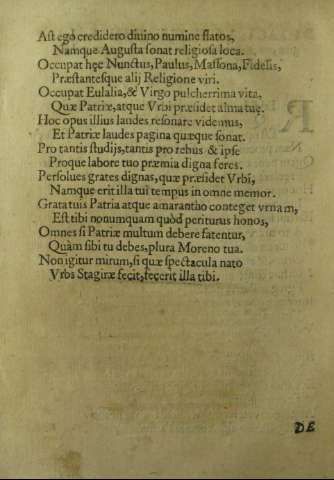 Ast ego crediderο diuino numine flatos,
Namque Augusta sonat religiosa loca.
Occupat hęc Nunctus, Paulus, Massona, Fidelis,
Præstantesque alij Religione viri.
Occupat Eulalia, & Virgo pulcherrima vita,
Quæ Patriæ, atque Vrbi præsidet alma tuę.
Hoc opus illius laudes resonare videmus,
Et Patriæ laudes pagina quæque sonat.
Pro tantis studijs, tantis pro rebus & ipse
Proque labore tuo præmia digna feres.
Persolues grates dignas, quæ præsidet Vrbi,
Namque erit illa tui tempus in omne memor.
Grata tuis Patria atque amarantho conteget vrnam,
Est tibi nonumquam quòd periturus honos,
Omnes si Patriæ multum debere fatentur,
Quàm sibi tu debes, plura Moreno tua.
Non igitur mirum, si quæ spectacula nato
Vrbs Stagiræ fecit, fecerit illa tibi.
DE